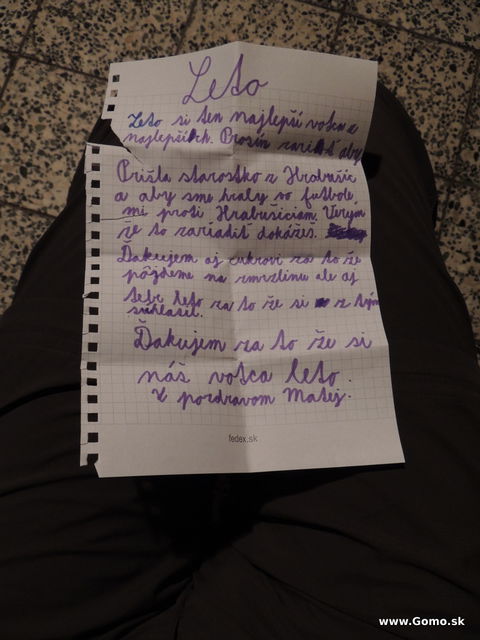 Leto
Leto si ten najlepší votca z
najlepších. Prosín zariaď aby
Prišla starostka z Hrabušíc
a aby sme hraly vo futbole,
mi proti Hrabušiciam. Verym
že to zariadiť dokážeš.
Ďakujem aj cukrovi za to že
pôjdeme na zmrzlinu ale aj
tebe leto za to že si z tým
súhlasil.
Ďakujem za to že si
náš votca leto.
Z pozdravom Matej.
fedex.sk
www.Gomo.sk